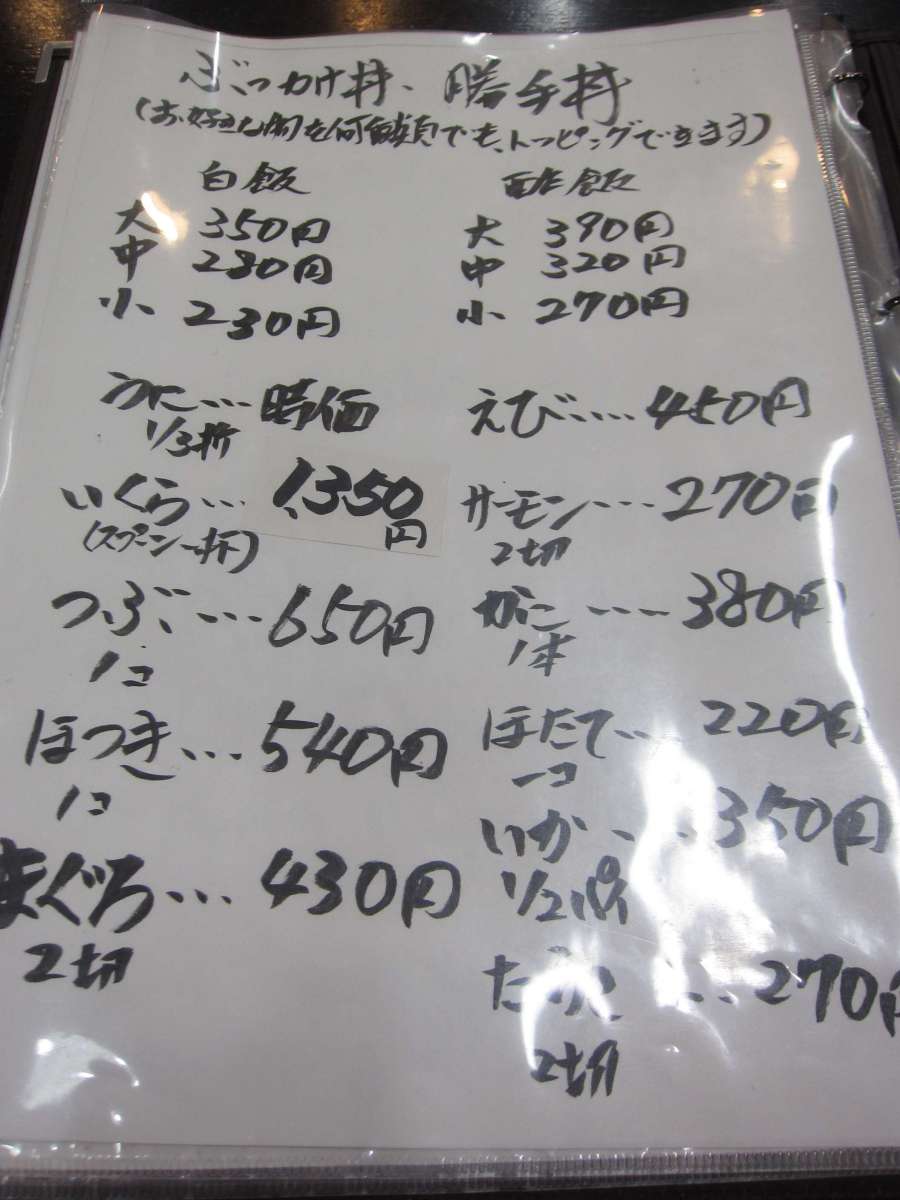 ぶっかけ丼、勝手丼
(お好きな物を何種類でも、トッピングできます)
白飯
大 350円
中 280円
小 230円
酢飯
大 390円
中 320円
小 270円
うに… 時価
1/3折
いくら… 1,350円
(スプーン一杯)
つぶ… 650円
1コ
ほっき… 540円
1コ
まぐろ… 430円
2切
えび… 450円
サーモン… 270円
2切
かに… 380円
1本
ほたて… 220円
一コ
いか… 350円
1/2パイ
たらこ… 270円
2切